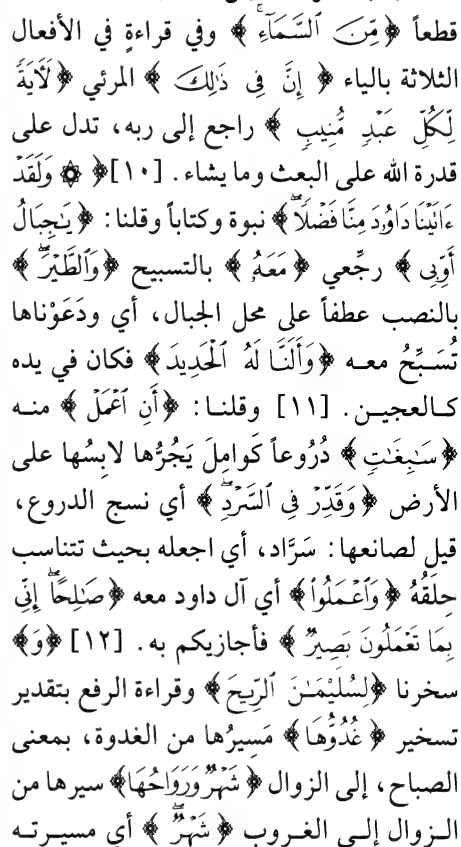 قطعاً ﴿مِّنَ ٱلسَّمَآءِۚ﴾ وفي قراءةٍ في الأفعال
الثلاثة بالياء ﴿إِنَّ فِى ذَٰلِكَ﴾ المرئي ﴿لَأٓيَةٗ
لِّكُلِّ عَبۡدٖ مُّنِيبٖ﴾ راجع إلى ربه، تدل على
قدرة الله على البعث وما يشاء. [١٠] ﴿۞ وَلَقَدۡ
ءَاتَيۡنَا دَاوُۥدَ مِنَّا فَضۡلٗاۖ﴾ نبوة وكتاباً وقلنا: ﴿يَٰجِبَالُ
أَوِّبِى﴾ رجِّعي ﴿مَعَهُۥ﴾ بالتسبيح ﴿وَٱلطَّيۡرَۖ﴾
بالنصب عطفاً على محل الجبال، أي ودَعَوْناها
تُسَبِّحُ معه ﴿وَأَلَنَّا لَهُ ٱلۡحَدِيدَ﴾ فكان في يده
كالعجين. [١١] وقلنا: ﴿أَنِ ٱعۡمَلۡ﴾ منه
﴿سَٰبِغَٰتٖ﴾ دُرُوعاً كَوامِلَ يَجُرُّها لابِسُها على
الأرض ﴿وَقَدِّرۡ فِى ٱلسَّرۡدِۖ﴾ أي نسج الدروع،
قيل لصانعها: سَرَّاد، أي اجعله بحيث تتناسب
حِلَقُهُ ﴿وَٱعۡمَلُواْ﴾ أي آل داود معه ﴿صَٰلِحًاۖ إِنِّى
بِمَا تَعۡمَلُونَ بَصِيرٞ﴾ فأجازيكم به. [١٢] ﴿وَ﴾
سخرنا ﴿لِسُلَيۡمَٰنَ ٱلرِّيحَ﴾ وقراءة الرفع بتقدير
تسخير ﴿غُدُوُّهَا﴾ مَسِيرُها من الغدوة، بمعنى
الصباح، إلى الزوال ﴿شَهۡرٞ وَرَوَاحُهَا﴾ سيرها من
الزوال إلى الغروب ﴿شَهۡرٞۖ﴾ أي مسيرته